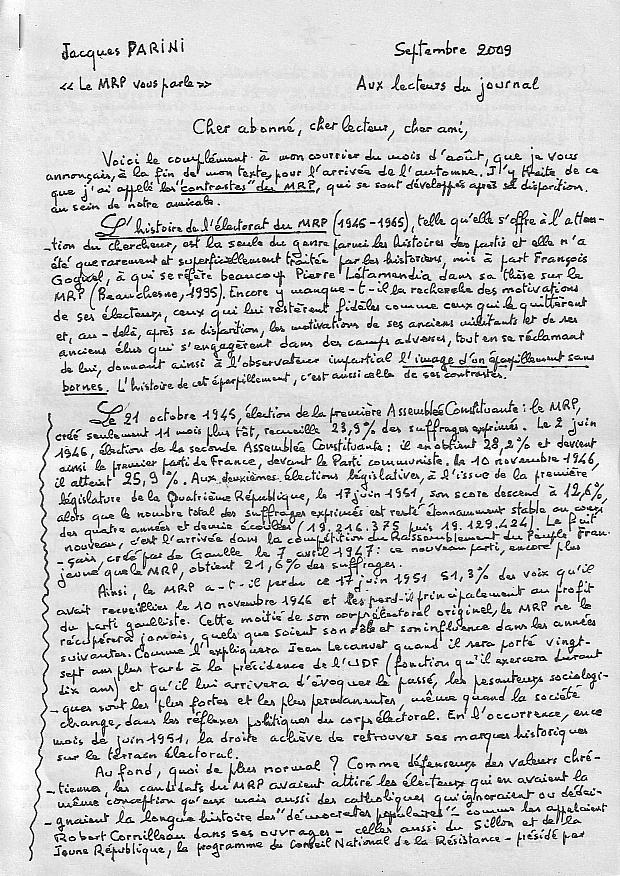 Jacques PARINI
Septembre 2009
<< Le MRP vous parle >>
Aux lecteurs du journal
Cher abonné, cher lecteur, cher ami,
Voici le complément à mon courrier du mois d'août, que je vous
annonçais, à la fin de mon texte, pour l'arrivée de l'automne. J'y traite de ce
que j'ai appelé les "contrastes" du MRP, qui se sont développés après sa disparition.
au sein de notre amicale.
L'histoire de l'électorat du MRP (1945-1965), telle qu'elle s'offre à l'atten-
-tion du chercheur, est la seule du genre parmi les histoires des partis et elle n'a
été que rarement et superficiellement traitée par les historiens, mis à part François
Goguel, à qui se réfère beaucoup Pierre Létamendia dans sa thèse sur le
MRP (Beauchesne, 1995). Encore y manque-t-il la recherche des motivations
de ses électeurs, ceux qui lui restèrent fidèles comme ceux qui le quittèrent
et, au-delà, après sa disparition, les motivations de ses anciens militants et de ses
anciens élus qui s'engagèrent dans des camps adverses, tout en se réclamant
de lui, donnant ainsi à l'observateur impartial l'image d'un éparpillement sans
bornes. L'histoire de cet éparpillement, c'est aussi celle de ses contrastes.
Le 21 octobre 1945, élection de la première Assemblée Constituante : le MRP,
créé seulement 11 mois plus tôt, recueille 23,9% des suffrages exprimés. Le 2 juin
1946, élection de la seconde Assemblée Constituante : il en obtient 28,2% et devient
ainsi le premier parti de France, devant le Parti communiste. Le 10 novembre 1946,
il atteint 25,9%. Aux deuxièmes élections législatives, à l'issue de la première
législature de la Quatrième République, le 17 juin 1951, son score descend à 12,6%,
alors que le nombre total des suffrages exprimés est resté étonnamment stable au cours
des quatre années et demie écoulées (19.216.375 puis 19.129.424). Le fait
nouveau, c'est l'arrivée dans la compétition du Rassemblement du Peuple Fran-
-çais, créé par de Gaulle le 7 avril 1947 : ce nouveau parti, encore plus
jeune que le MRP, obtient 21,6% des suffrages.
Ainsi, le MRP a-t-il perdu ce 17 juin 1951 51,3% des voix qu'il
avait recueillies le 10 novembre 1946 et les perd-il principalement au profit
du parti gaulliste. Cette moitié de son corps électoral originel, le MRP ne le
récupérera jamais, quels que soient son rôle et son influence dans les années
suivantes. Comme l'expliquera Jean Lecanuet quand il sera porté vingt-
sept ans plus tard à la présidence de l'UDF (fonction qu'il exercera durant
dix ans) et qu'il lui arrivera d'évoquer le passé, les pesanteurs sociologi-
-ques sont les plus fortes et les plus permanentes, même quand la société
change, dans les réflexes politiques du corps électoral. En l'occurrence, en ce
mois de juin 1951, la droite achève de retrouver ses marques historiques
sur le terrain électoral.
Au fond, quoi de plus normal ? Comme défenseurs des valeurs chré-
-tiennes, les candidats du MRP avaient attiré les électeurs qui en avaient la
même conception qu'eux mais aussi des catholiques qui ignoraient ou dédai-
-gnaient la longue histoire des "démocrates populaires" - comme les appelaient
Robert Cornilleau dans ses ouvrages - celles aussi du Sillon et de la
Jeune République, le programme du Conseil National de la Résistance - présidé par